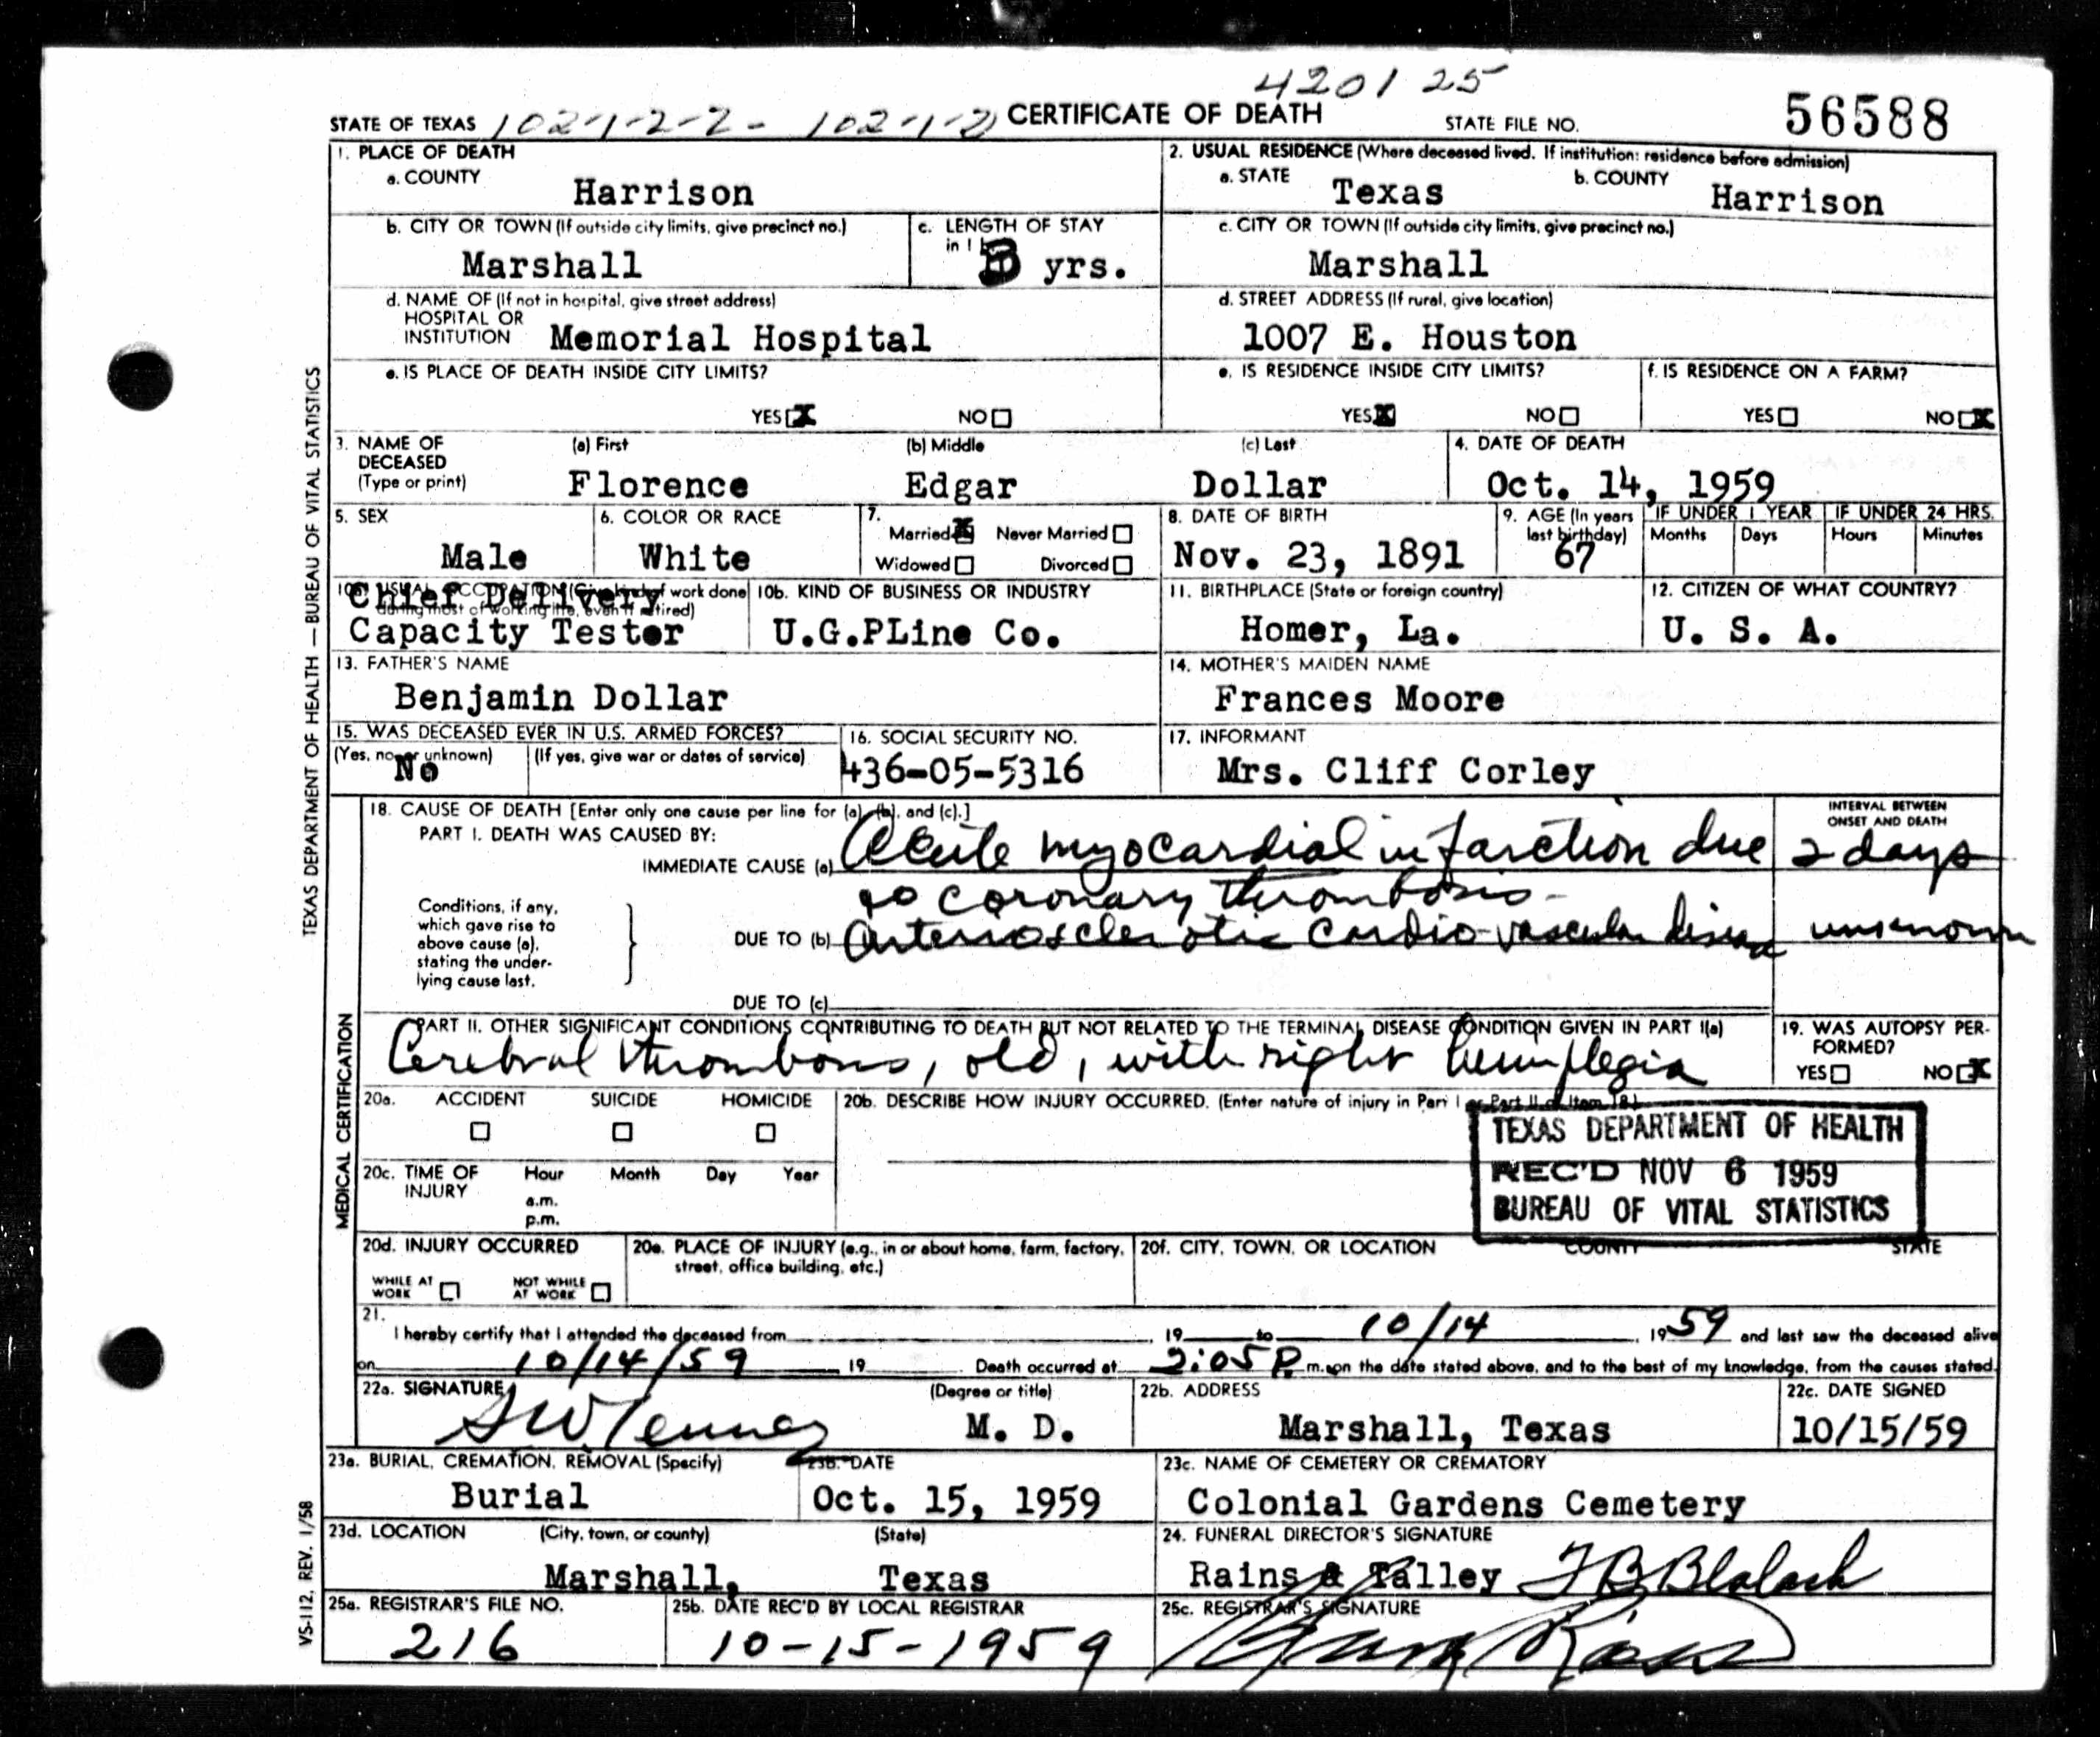 420125
STATE OF TEXAS 102-1-2-2- 102-1-2 CERTIFICATE OF DEATH STATE FILE NO. 56588
1. PLACE OF DEATH
a. COUNTY Harrison
2. USUAL RESIDENCE (Where deceased lived. If institution: residence before admission)
a. STATE Texas b. COUNTY Harrison
b. CITY OR TOWN (If outside city limits, give precinct no.) Marshall
c. LENGTH OF STAY in 1 yrs.
c. CITY OR TOWN (If outside city limits, give precinct no.) Marshall
d. NAME OF (If not in hospital, give street address)
HOSPITAL OR
INSTITUTION Memorial Hospital
d. STREET ADDRESS (If rural, give location)
1007 E. Houston
e. IS PLACE OF DEATH INSIDE CITY LIMITS?
YES X NO
e. IS RESIDENCE INSIDE CITY LIMITS?
YES X NO
f. IS RESIDENCE ON A FARM?
YES NO X
3. NAME OF DECEASED (Type or print)
(a) First (b) Middle (c) Last
Florence Edgar Dollar
4. DATE OF DEATH
Oct. 14, 1959
5. SEX
Male
6. COLOR OR RACE
White
7. Married X Never Married
Widowed Divorced
8. DATE OF BIRTH
Nov. 23, 1891
9. AGE (In years last birthday)
67
IF UNDER 1 YEAR IF UNDER 24 HRS.
Months Days Hours Minutes
10a. USUAL OCCUPATION (Give kind of work done during most of working life, even if retired)
Chief Delivery
Capacity Tester
10b. KIND OF BUSINESS OR INDUSTRY
U.G.PLine Co.
11. BIRTHPLACE (State or foreign country)
Homer, La.
12. CITIZEN OF WHAT COUNTRY?
U. S. A.
13. FATHER'S NAME
Benjamin Dollar
14. MOTHER'S MAIDEN NAME
Frances Moore
15. WAS DECEASED EVER IN U.S. ARMED FORCES?
(Yes, no, or unknown) (If yes, give war or dates of service)
No
16. SOCIAL SECURITY NO.
436-05-5316
17. INFORMANT
Mrs. Cliff Corley
18. CAUSE OF DEATH [Enter only one cause per line for (a), (b), and (c).]
PART I. DEATH WAS CAUSED BY:
INTERVAL BETWEEN
ONSET AND DEATH
IMMEDIATE CAUSE (a) Acute myocardial infarction due 2 days
to coronary thrombosis-
Conditions, if any,
which gave rise to
above cause (a),
stating the under-
lying cause last.
DUE TO (b) Arteriosclerotic cardio-vascular disease unknown
DUE TO (c)
PART II. OTHER SIGNIFICANT CONDITIONS CONTRIBUTING TO DEATH BUT NOT RELATED TO THE TERMINAL DISEASE CONDITION GIVEN IN PART I(a)
Cerebral thrombosis, old, with right hemiplegia
19. WAS AUTOPSY PER-
FORMED?
YES NO X
20a. ACCIDENT SUICIDE HOMICIDE
20b. DESCRIBE HOW INJURY OCCURRED. (Enter nature of injury in Part I or Part II of Item 18.)
TEXAS DEPARTMENT OF HEALTH
REC'D NOV 6 1959
BUREAU OF VITAL STATISTICS
20c. TIME OF INJURY
Hour Month Day Year
a.m.
p.m.
20d. INJURY OCCURRED
WHILE AT WORK NOT WHILE AT WORK
20e. PLACE OF INJURY (e.g., in or about home, farm, factory, street, office building, etc.)
20f. CITY, TOWN, OR LOCATION COUNTY STATE
21.
I hereby certify that I attended the deceased from , 19 to 10/14 , 1959 and last saw the deceased alive
on 10/14/59 19 . Death occurred at 2:05 P. m. on the date stated above, and to the best of my knowledge, from the causes stated.
22a. SIGNATURE (Degree or title)
SW Tenney M. D.
22b. ADDRESS
Marshall, Texas
22c. DATE SIGNED
10/15/59
23a. BURIAL, CREMATION, REMOVAL (Specify)
Burial
23b. DATE
Oct. 15, 1959
23c. NAME OF CEMETERY OR CREMATORY
Colonial Gardens Cemetery
23d. LOCATION (City, town, or county) (State)
Marshall, Texas
24. FUNERAL DIRECTOR'S SIGNATURE
Rains & Talley F B Blalock
25a. REGISTRAR'S FILE NO.
216
25b. DATE REC'D BY LOCAL REGISTRAR
10-15-1959
25c. REGISTRAR'S SIGNATURE
TEXAS DEPARTMENT OF HEALTH — BUREAU OF VITAL STATISTICS
MEDICAL CERTIFICATION
VS-112, REV. 1/58